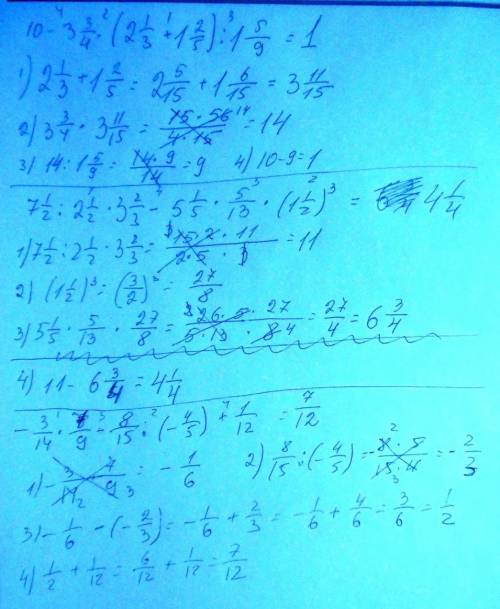 10 - 3 3/4 · (2 1/3 + 1 2/5) : 1 5/9 = 1
1) 2 1/3 + 1 2/5 = 2 5/15 + 1 6/15 = 3 11/15
2) 3 3/4 · 3 11/15 = 15 · 56 14 / 4 · 15 = 14
3) 14 : 1 5/9 = 14 · 9 / 14 = 9 4) 10 - 9 = 1
7 1/2 : 2 1/2 · 3 2/3 - 5 1/5 · 5/13 · (1 1/2)^3 = 4 1/4
1) 7 1/2 : 2 1/2 · 3 2/3 = 15 · 2 · 11 / 2 · 5 · 3 = 11
2) (1 1/2)^3 = (3/2)^3 = 27/8
3) 5 1/5 · 5/13 · 27/8 = 26 · 5 · 27 / 5 · 13 · 8 4 = 27/4 = 6 3/4
4) 11 - 6 3/4 = 4 1/4
- 3/14 · 7/9 - 8/15 : (- 4/5) + 1/12 = 7/12
1) - 3 · 7 / 14 2 · 9 3 = - 1/6 2) 8/15 : (- 4/5) = - 8 2 · 5 / 15 3 · 4 = - 2/3
3) - 1/6 - (- 2/3) = - 1/6 + 2/3 = - 1/6 + 4/6 = 3/6 = 1/2
4) 1/2 + 1/12 = 6/12 + 1/12 = 7/12